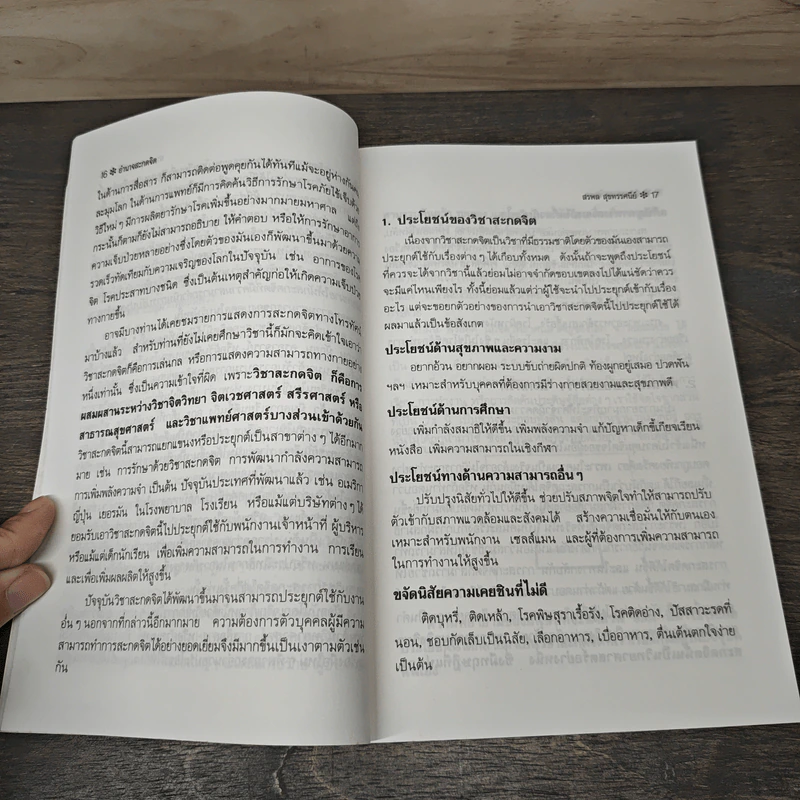 16 ❋ อำนาจสะกดจิต
ในด้านการสื่อสาร ก็สามารถติดต่อพูดคุยกันได้ทันทีแม้จะอยู่ห่างกันคน
ละมุมโลก ในด้านการแพทย์ก็มีการคิดค้นวิธีการรักษาโรคภัยไข้เจ็บด้วย
วิธีใหม่ๆ มีการผลิตยารักษาโรคเพิ่มขึ้นอย่างมากมายมหาศาล แต่ถึง
กระนั้นก็ตามก็ยังไม่สามารถอธิบาย ให้คำตอบ หรือให้การรักษาอาการ
ความเจ็บป่วยหลายอย่างซึ่งโดยตัวของมันเองก็พัฒนาขึ้นมาด้วยความ
รวดเร็วทัดเทียมกับความเจริญของโลกในปัจจุบัน เช่น อาการของโรค
จิต โรคประสาทบางชนิด ซึ่งเป็นต้นเหตุสำคัญก่อให้เกิดความเจ็บป่วย
ทางกายขึ้น
อาจมีบางท่านได้เคยชมรายการแสดงการสะกดจิตทางโทรทัศน์
มาบ้างแล้ว สำหรับท่านที่ยังไม่เคยศึกษาวิชานี้ก็มักจะคิดเข้าใจเอาว่า
วิชาสะกดจิตก็คือการเล่นกล หรือการแสดงความสามารถทางกายอย่าง
หนึ่งเท่านั้น ซึ่งเป็นความเข้าใจที่ผิด เพราะวิชาสะกดจิต ก็คือการ
ผสมผสานระหว่างวิชาจิตวิทยา จิตเวชศาสตร์ สรีรศาสตร์ หรือ
สาธารณสุขศาสตร์ และวิชาแพทย์ศาสตร์บางส่วนเข้าด้วยกัน
วิชาสะกดจิตนี้สามารถแยกแขนงหรือประยุกต์เป็นสาขาต่างๆ ได้อีกมาก
มาย เช่น การรักษาด้วยวิชาสะกดจิต การพัฒนากำลังความสามารถ
การเพิ่มพลังความจำ เป็นต้น ปัจจุบันประเทศที่พัฒนาแล้ว เช่น อเมริกา
ญี่ปุ่น เยอรมัน ในโรงพยาบาล โรงเรียน หรือแม้แต่บริษัทต่างๆ ได้
ยอมรับเอาวิชาสะกดจิตนี้ไปประยุกต์ใช้กับพนักงานเจ้าหน้าที่ ผู้บริหาร
หรือแม้แต่เด็กนักเรียน เพื่อเพิ่มความสามารถในการทำงาน การเรียน
และเพื่อเพิ่มผลผลิตให้สูงขึ้น
ปัจจุบันวิชาสะกดจิตได้พัฒนาขึ้นมาจนสามารถประยุกต์ใช้กับงาน
อื่นๆ นอกจากที่กล่าวนี้อีกมากมาย ความต้องการตัวบุคคลผู้มีความ
สามารถทำการสะกดจิตได้อย่างยอดเยี่ยมจึงมีมากขึ้นเป็นเงาตามตัวเช่น
กัน
สรพล สุขทรรศนีย์ ❋ 17
1. ประโยชน์ของวิชาสะกดจิต
เนื่องจากวิชาสะกดจิตเป็นวิชาที่มีธรรมชาติโดยตัวของมันเองสามารถ
ประยุกต์ใช้กับเรื่องต่างๆ ได้เกือบทั้งหมด ดังนั้นถ้าจะพูดถึงประโยชน์
ที่ควรจะได้จากวิชานี้แล้วย่อมไม่อาจจำกัดขอบเขตลงไปได้แน่ชัดว่าควร
จะมีแค่ไหนเพียงไร ทั้งนี้ย่อมแล้วแต่ว่าผู้ใช้จะนำไปประยุกต์เข้ากับเรื่อง
อะไร แต่จะขอยกตัวอย่างของการนำเอาวิชาสะกดจิตนี้ไปประยุกต์ใช้ได้
ผลมาแล้วเป็นข้อสังเกต
ประโยชน์ด้านสุขภาพและความงาม
อยากอ้วน อยากผอม ระบบขับถ่ายผิดปกติ ท้องผูกอยู่เสมอ ปวดฟัน
ฯลฯ เหมาะสำหรับบุคคลที่ต้องการมีร่างกายสวยงามและสุขภาพดี
ประโยชน์ด้านการศึกษา
เพิ่มกำลังสมาธิให้ดีขึ้น เพิ่มพลังความจำ แก้ปัญหาเด็กขี้เกียจเรียน
หนังสือ เพิ่มความสามารถในเชิงกีฬา
ประโยชน์ทางด้านความสามารถอื่นๆ
ปรับปรุงนิสัยทั่วไปให้ดีขึ้น ช่วยปรับสภาพจิตใจทำให้สามารถปรับ
ตัวเข้ากับสภาพแวดล้อมและสังคมได้ สร้างความเชื่อมั่นให้กับตนเอง
เหมาะสำหรับพนักงาน เซลส์แมน และผู้ที่ต้องการเพิ่มความสามารถ
ในการทำงานให้สูงขึ้น
ขจัดนิสัยความเคยชินที่ไม่ดี
ติดบุหรี่, ติดเหล้า, โรคพิษสุราเรื้อรัง, โรคติดอ่าง, ปัสสาวะรดที่
นอน, ชอบกัดเล็บเป็นนิสัย, เลือกอาหาร, เบื่ออาหาร, ตื่นเต้นตกใจง่าย
เป็นต้น